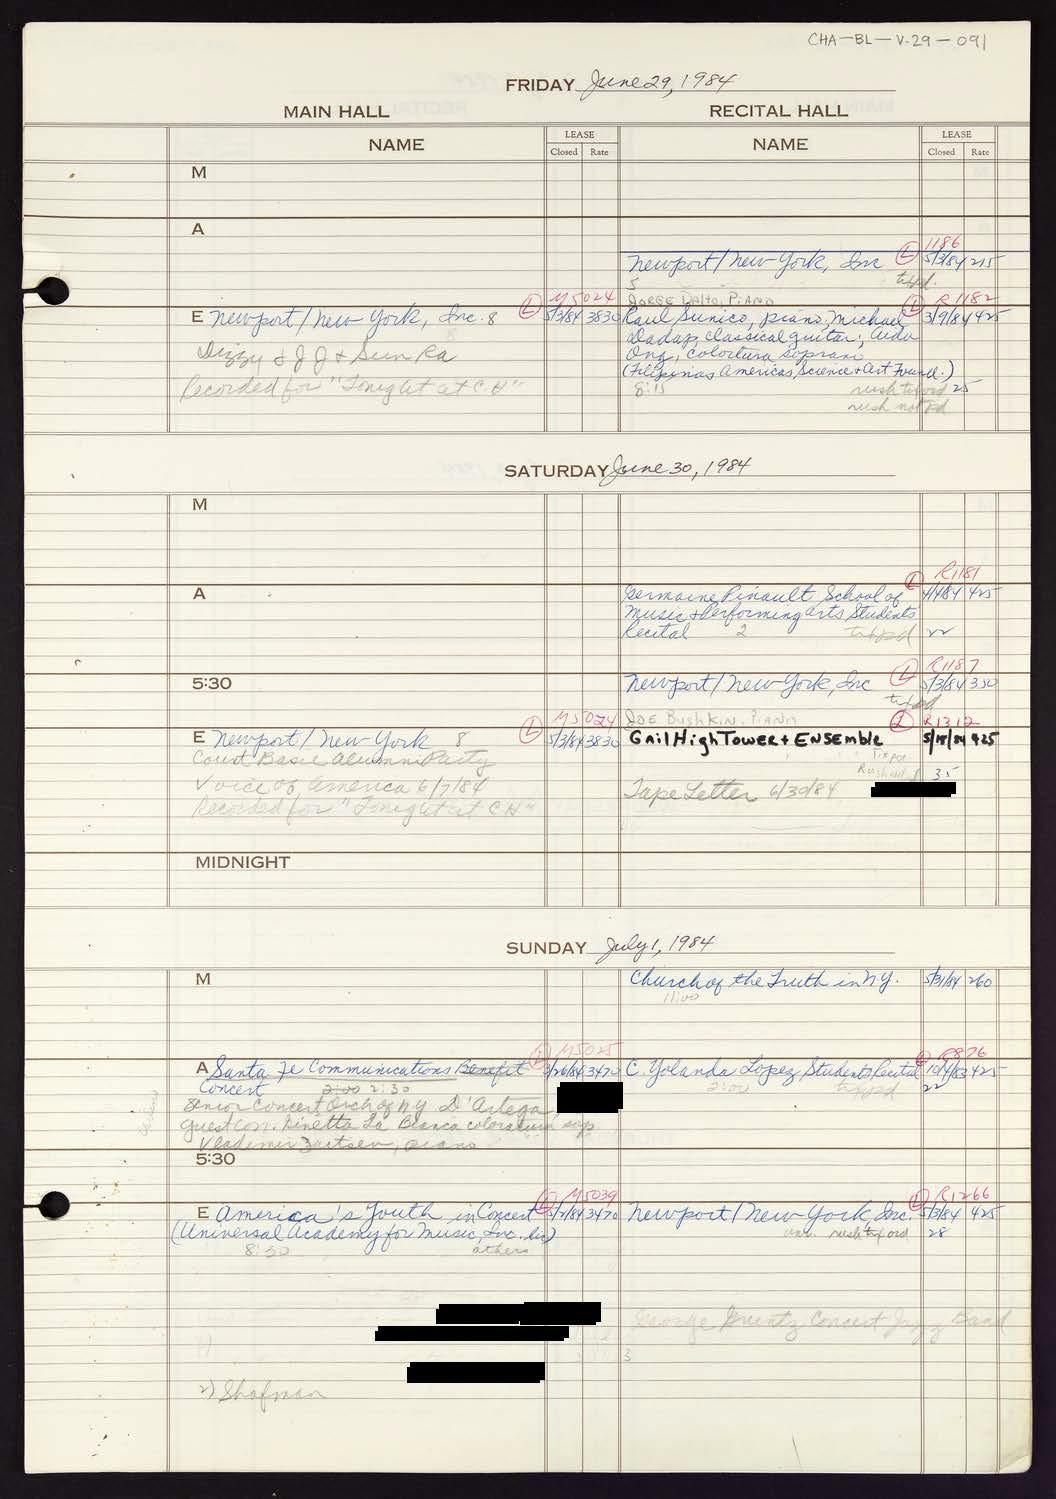 CHA-BL-V.29-091
FRIDAY June 29, 1984
MAIN HALL RECITAL HALL
NAME LEASE Closed Rate NAME LEASE Closed Rate
M
A
L 1186
Newport/New York, Inc 5/3/84 215
5 tixpd.
M5024 Jorge Dalto, Piano L R1182
E Newport/New York, Inc. 8 L 5/3/84 3830 Raul Sunico, piano; Michael 3/9/84 425
Dizzy & J J & Sun Ra Dadap, classical guitar; Aida
Ong, coloratura soprano
Recorded for "Tonight at CH" (Filipinas Americas Science + Art Found.)
8:15 rush tixord 25
rush not pd
SATURDAY June 30, 1984
M
L R1181
A Germaine Pinault School of 4/4/84 425
Music + Performing Arts Students
Recital 2 tixpd 22
L R1187
5:30 Newport/New York, Inc 5/3/84 350
tixpd
M5024 Joe Bushkin, Piano L R1312
E Newport/New York 8 L 5/3/84 3830 Gail HighTower + ENSEmble 425
Count Basie Alumni Party Tixpd
Voice of America 6/7/84 35
Recorded for "Tonight at CH" Tape Letter 6/30/84
MIDNIGHT
SUNDAY July 1, 1984
M Church of the Truth in N.Y. 5/31/84 260
11:00
L M5025 L R876
A Santa Fe Communications Benefit 3470 C. Yolanda Lopez Students Recital 10/4/83 425
Concert 2:00 2:30 2:00 tixpd 22
Senior Concert Orch of NY D'Artega
guest con. Ginetta La Bianca coloratura sop
Vladimir Zaitsev, piano
5:30
L M5039 L R1266
E America's Youth in Concert 3470 Newport/New York, Inc. 5/3/84 425
(Universal Academy for Music, Inc. lic) rush tix ord 28
8:30 others
George Gruntz Concert Jazz Band
3
2) Shafman